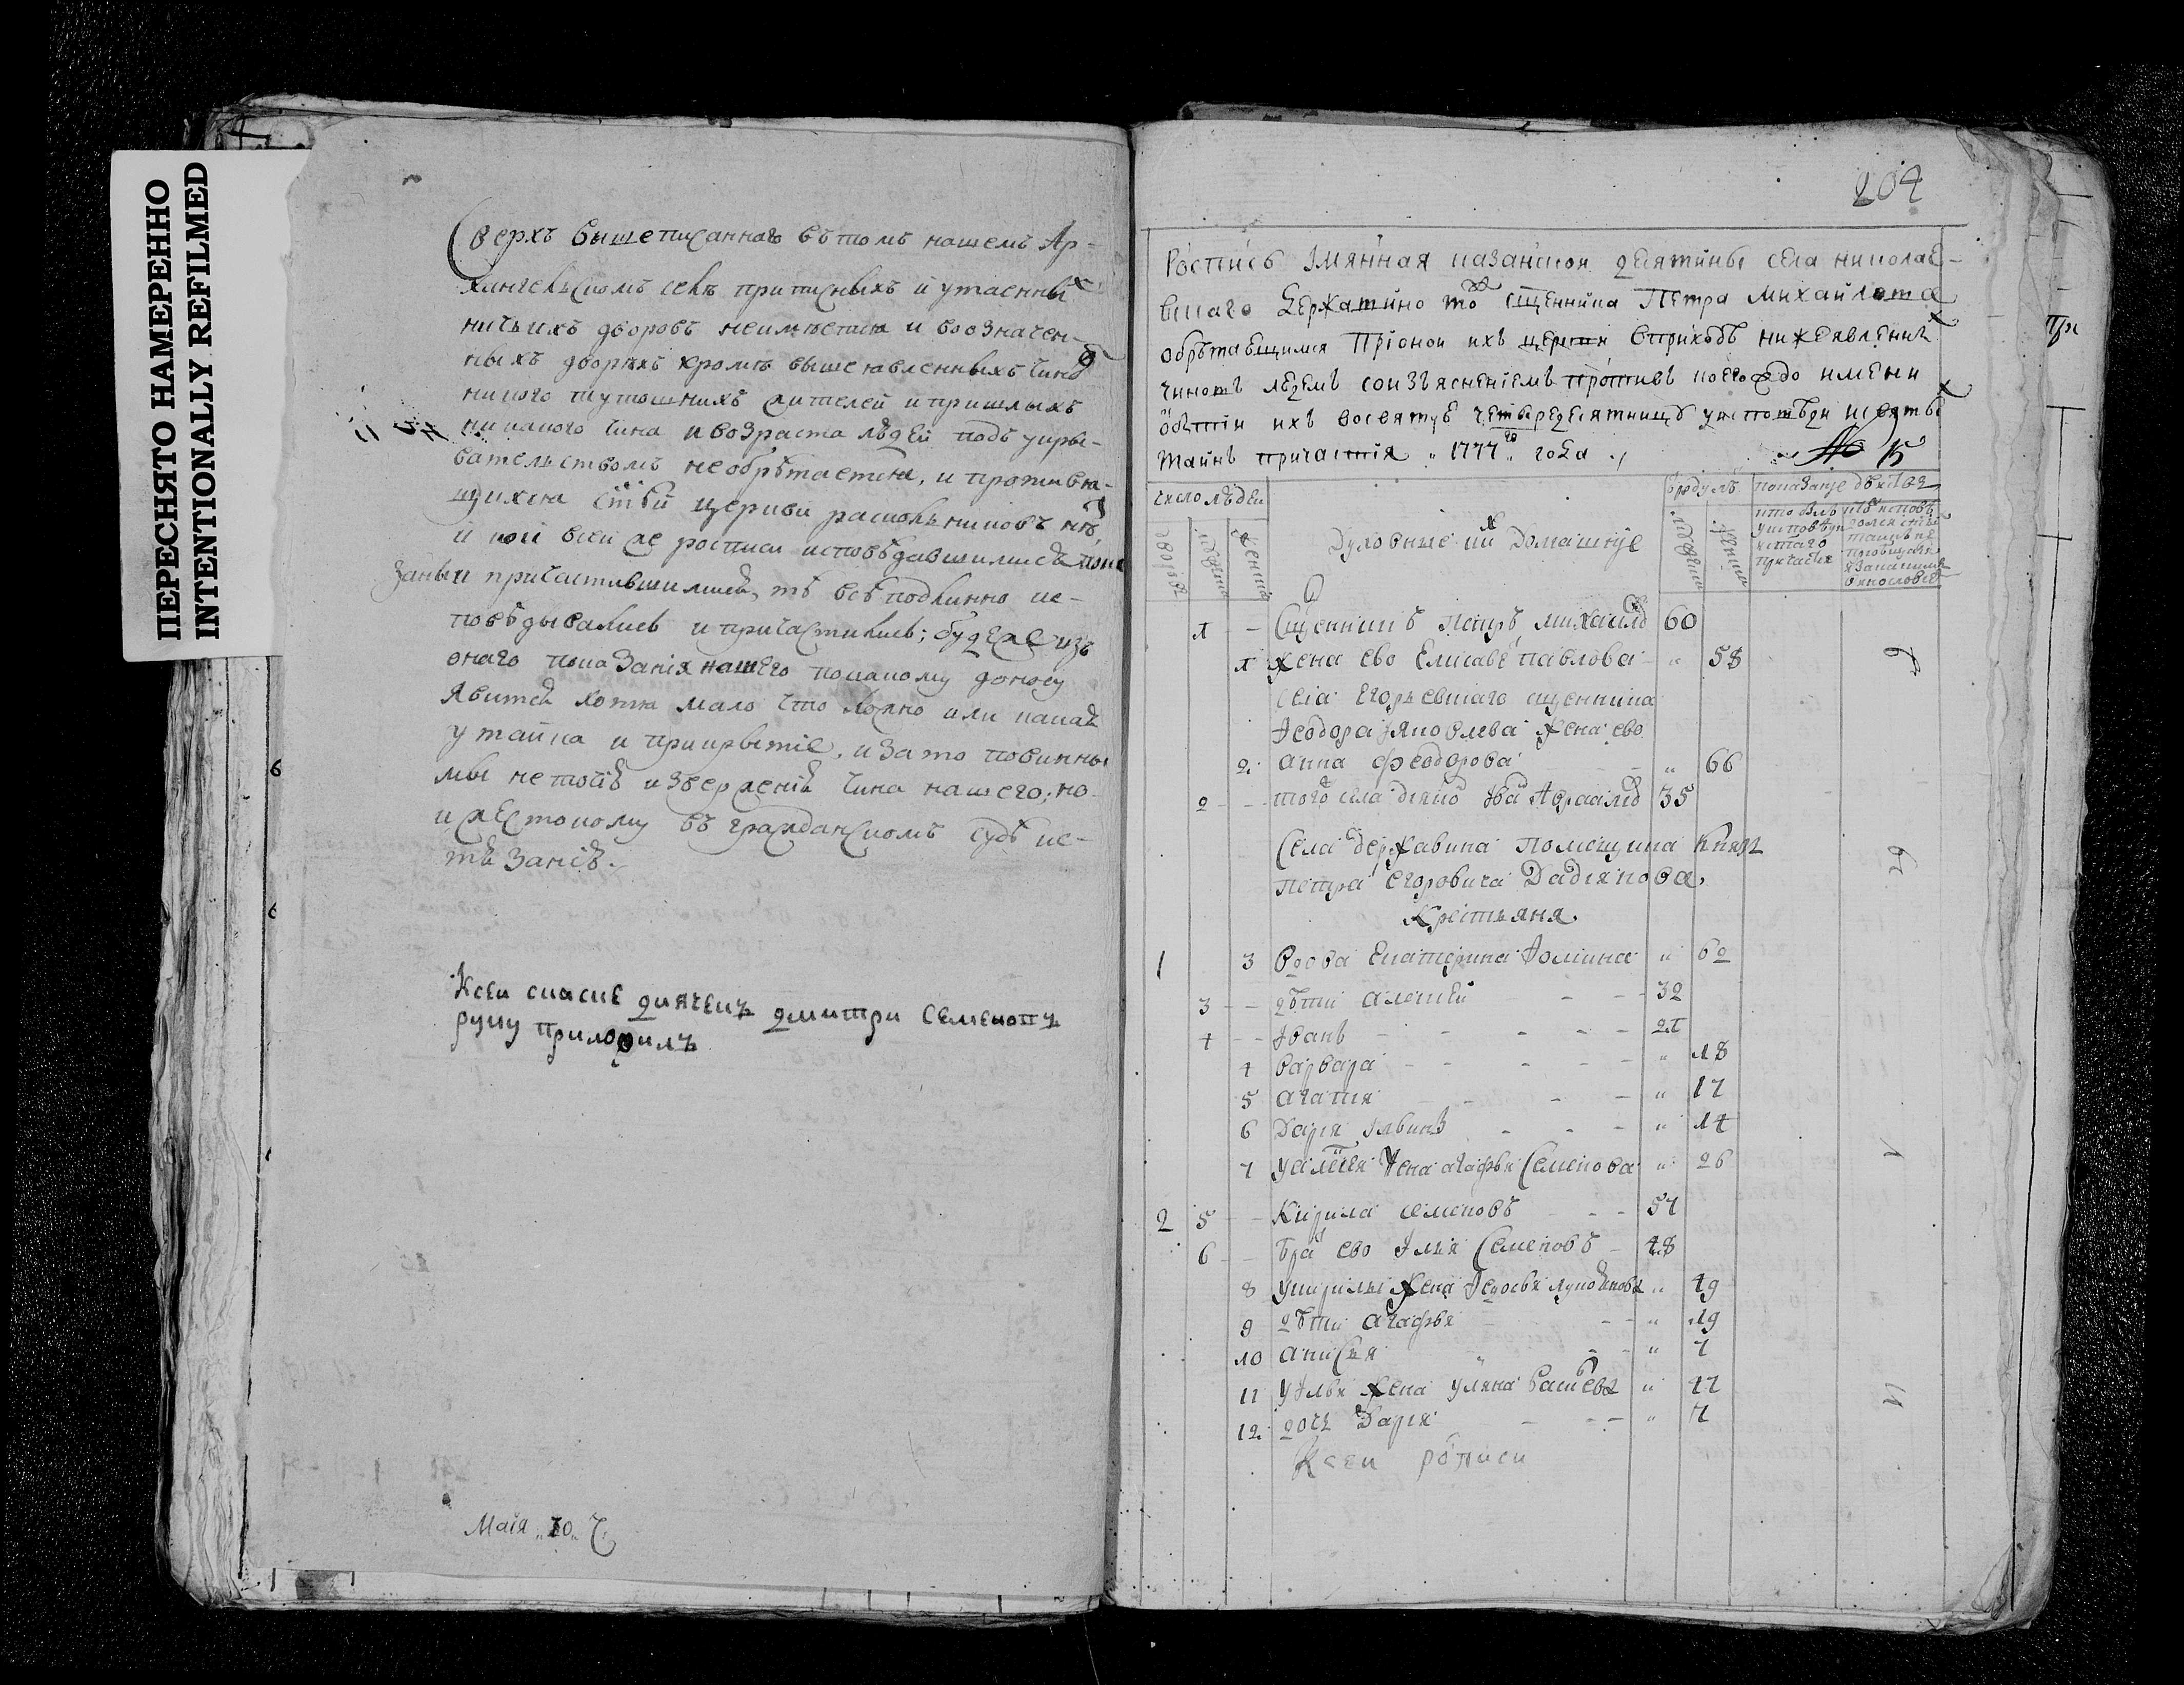 ПЕРЕСНЯТО НАМЕРЕННО
INTENTIONALLY REFILMED
Сверхъ вышеписанного въ томъ нашемъ Ар-
хангельскомъ селе приписныхъ и утаенных
ничьихъ дворовъ неимѣетца и в означен-
ныхъ дворѣхъ кромѣ вышеявленныхъ чинов
никого тутошнихъ жителей и пришлыхъ
никакого чина и возраста людей подъ укры-
вательствомъ необрѣтается, и противля-
щихся стѣй церкви раскольниковъ нѣт
и кои в сеи же росписи исповѣдавшимися пока
заны и причастившимися, тѣ всѣ подлинно ис-
повѣдывались и причастились; буде же из
онаго показанія нашего покакому доносу
явится хотя мало что ложно или какая
утайка и прикрытіе, и за то повинны
мы не токмо изверженію чина нашего; но
и жестокому въ гражданскомъ судѣ ис-
тязанію.
Ксеи сказке дьячекъ дмитри Семеновъ
руку приложилъ
Маія 10 ч
204
Роспись Имянная казанской десятины села николае-
вскаго Державино тож сщенника Петра Михайлова
обрѣтающимся При оной ихъ церкви в приходѣ нижеявленных
чиновъ людемъ со изъясненіемъ противъ коегождо имени
о бытіи ихъ во святую четыредесятницу у исповѣди и святых
Тайнъ причастія 1777 года
число людеи
дворовъ
мужеска
женска
Духовные и их Домашніе
мужеска
женска
показаніе
1 — Сщенникъ петръ михаилов 60
1 жена ево Елисавет павлова „ 58
села Егорьевскаго сщенника
Феодора яковлева жена ево
2 анна Феодорова „ 66
2 — того села дьяко Іван Авраамов 35
Села Державина Помещика Князя
петра Егоровича Дадіанова,
Крестьяня.
1 3 Вдова Екатерина Фомина „ 60
3 — дѣти алексеи 32
4 — Іванъ 21
4 варвара „ 18
5 агапия „ 17
6 Дарья „ 14
7 у алексея жена агафья Семенова „ 26
2 5 — Кирила семеновъ 57
6 — брат ево Илья Семеновъ 48
8 у кирилы жена „ 49
9 дѣти агафья „ 19
10 анисья „ 7
11 у Ильи жена уляна „ 47
12 дочь Дарья „ 7
Ксеи росписи